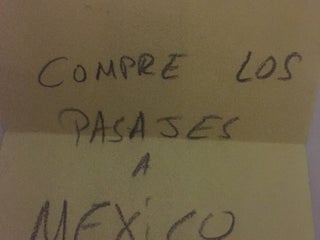 COMPRE LOS
PASAJES
A
MEXiCO